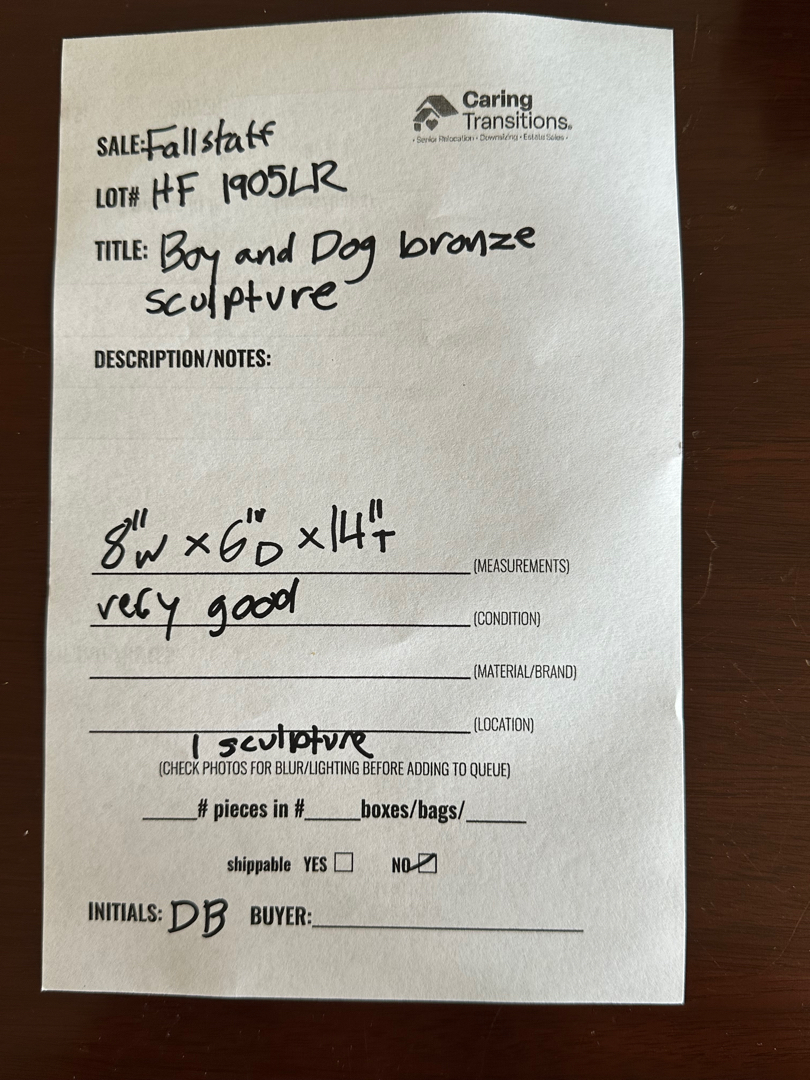 Caring
Transitions®
• Senior Relocation • Downsizing • Estate Sales •
SALE: Fallstaff
LOT# HF 1905LR
TITLE: Boy and Dog bronze
sculpture
DESCRIPTION/NOTES:
8"W x 6"D x 14"T
(MEASUREMENTS)
very good
(CONDITION)
(MATERIAL/BRAND)
(LOCATION)
1 sculpture
(CHECK PHOTOS FOR BLUR/LIGHTING BEFORE ADDING TO QUEUE)
____# pieces in #____boxes/bags/____
shippable YES ☐ NO ☑
INITIALS: DB BUYER:____